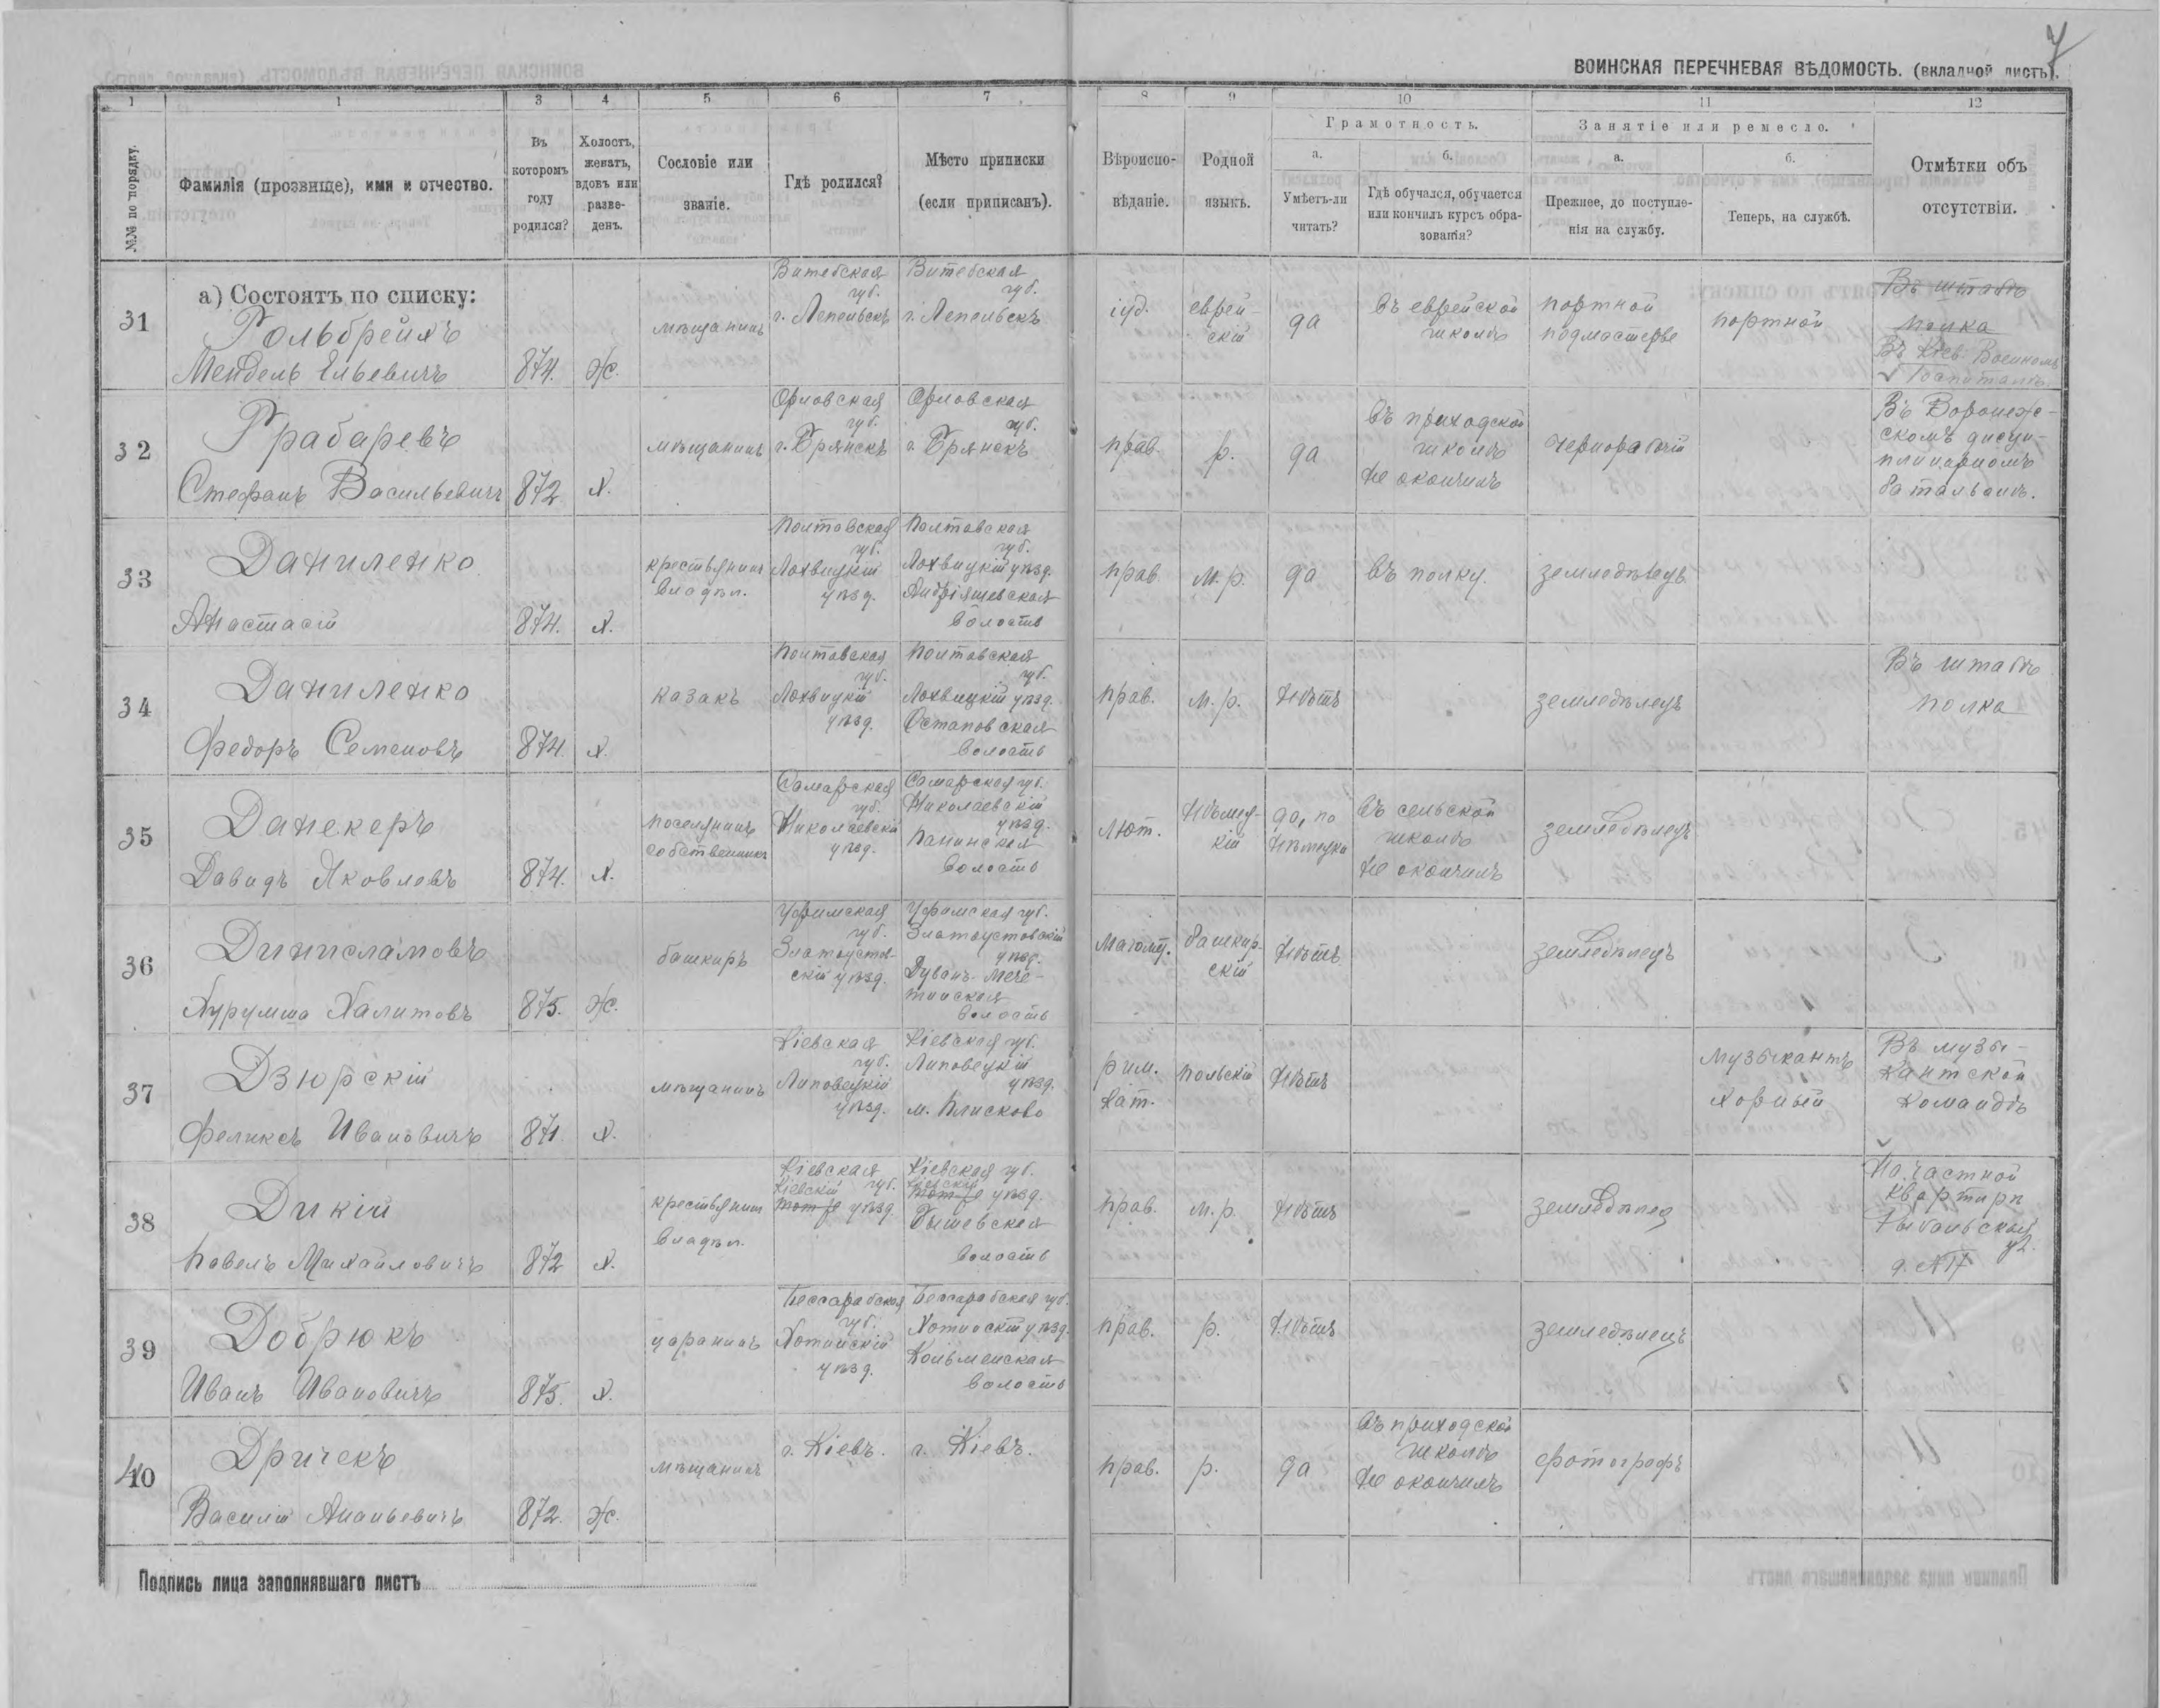 7
ВОИНСКАЯ ПЕРЕЧНЕВАЯ ВѢДОМОСТЬ. (вкладной листъ).
1 1 3 4 5 6 7 8 9 10 11 12
№№ по порядку.
Фамилія (прозвище), имя и отчество.
Въ которомъ году родился?
Холостъ, женатъ, вдовъ или разве-денъ.
Сословіе или званіе.
Гдѣ родился?
Мѣсто приписки (если приписанъ).
Вѣроиспо-вѣданіе.
Родной языкъ.
Грамотность.
а. Умѣетъ-ли читать?
б. Гдѣ обучался, обучается или кончилъ курсъ обра-зованія?
Занятіе или ремесло.
а. Прежнее, до поступле-нія на службу.
б. Теперь, на службѣ.
Отмѣтки объ отсутствіи.
а) Состоятъ по списку:
31 Гольбрейхъ Мендель Ельевичъ 874. Ж. мѣщанинъ Витебская губ. г. Лепельскъ Витебская губ. г. Лепельскъ іуд. еврей-скій да въ еврейской школѣ портной подмастерье портной Въ штабѣ полка Въ Кіев. Военномъ Госпиталѣ
32 Грабаревъ Стефанъ Васильевичъ 872. Х. мѣщанинъ Орловская губ. г. Брянскъ Орловская губ. г. Брянскъ прав. р. да въ приходской школѣ не окончилъ чернорабочій Въ Воронеж-скомъ дисци-плинарномъ баталіонѣ.
33 Даниленко Анастасій 874. Х. крестьянинъ владѣл. Полтавская губ. Лохвицкій уѣзд. Полтавская губ. Лохвицкій уѣзд. волость прав. м.р. да въ полку. земледѣлецъ
34 Даниленко Федоръ Семеновъ 874. Х. казакъ Полтавская губ. Лохвицкій уѣзд. Полтавская губ. Лохвицкій уѣзд. Остаповская волость прав. м.р. нѣтъ земледѣлецъ Въ штабѣ полка
35 Данекеръ Давидъ Яковлевъ 874. Х. поселянинъ собственникъ Самарская губ. Николаевскій уѣзд. Самарская губ. Николаевскій уѣзд. Панинская волость Лют. нѣмец-кій да, по нѣмецки въ сельской школѣ не окончилъ земледѣлецъ
36 Динисламовъ Хурумша Халитовъ 875. Ж. башкиръ Уфимская губ. Златоустов-скій уѣзд. Уфимская губ. Златоустовскій уѣзд. Дуванъ-Мече-тлинская волость Магомет. башкир-скій нѣтъ земледѣлецъ
37 Дзюрскій Феликсъ Ивановичъ 871. Х. мѣщанинъ Кіевская губ. Липовецкій уѣзд. Кіевская губ. Липовецкій уѣзд. м. Плисково рим. кат. польскій нѣтъ музыкантъ хорный Въ музы-кантской командѣ
38 Дикій Павелъ Михайловичъ 872 Х. крестьянин владѣл. Кіевская губ. Кіевскій тотже уѣзд. Кіевская губ. Кіевскій тотже уѣзд. Бышевская волость прав. м.р. нѣтъ земледѣлец На частной квартирѣ Рыбальская ул.
39 Добрюкъ Иванъ Ивановичъ 875. Х. царанинъ Бессарабская губ. Хотинскій уѣзд. Бессарабская губ. Хотинскій уѣзд. Кольменская волость прав. р. нѣтъ земледѣлецъ
40 Дричекъ Василій Ананьевичъ 872. Ж. мѣщанинъ г. Кіевъ. г. Кіевъ. прав. р. да въ приходской школѣ не окончилъ фотографъ
Подпись лица заполнявшаго листъ